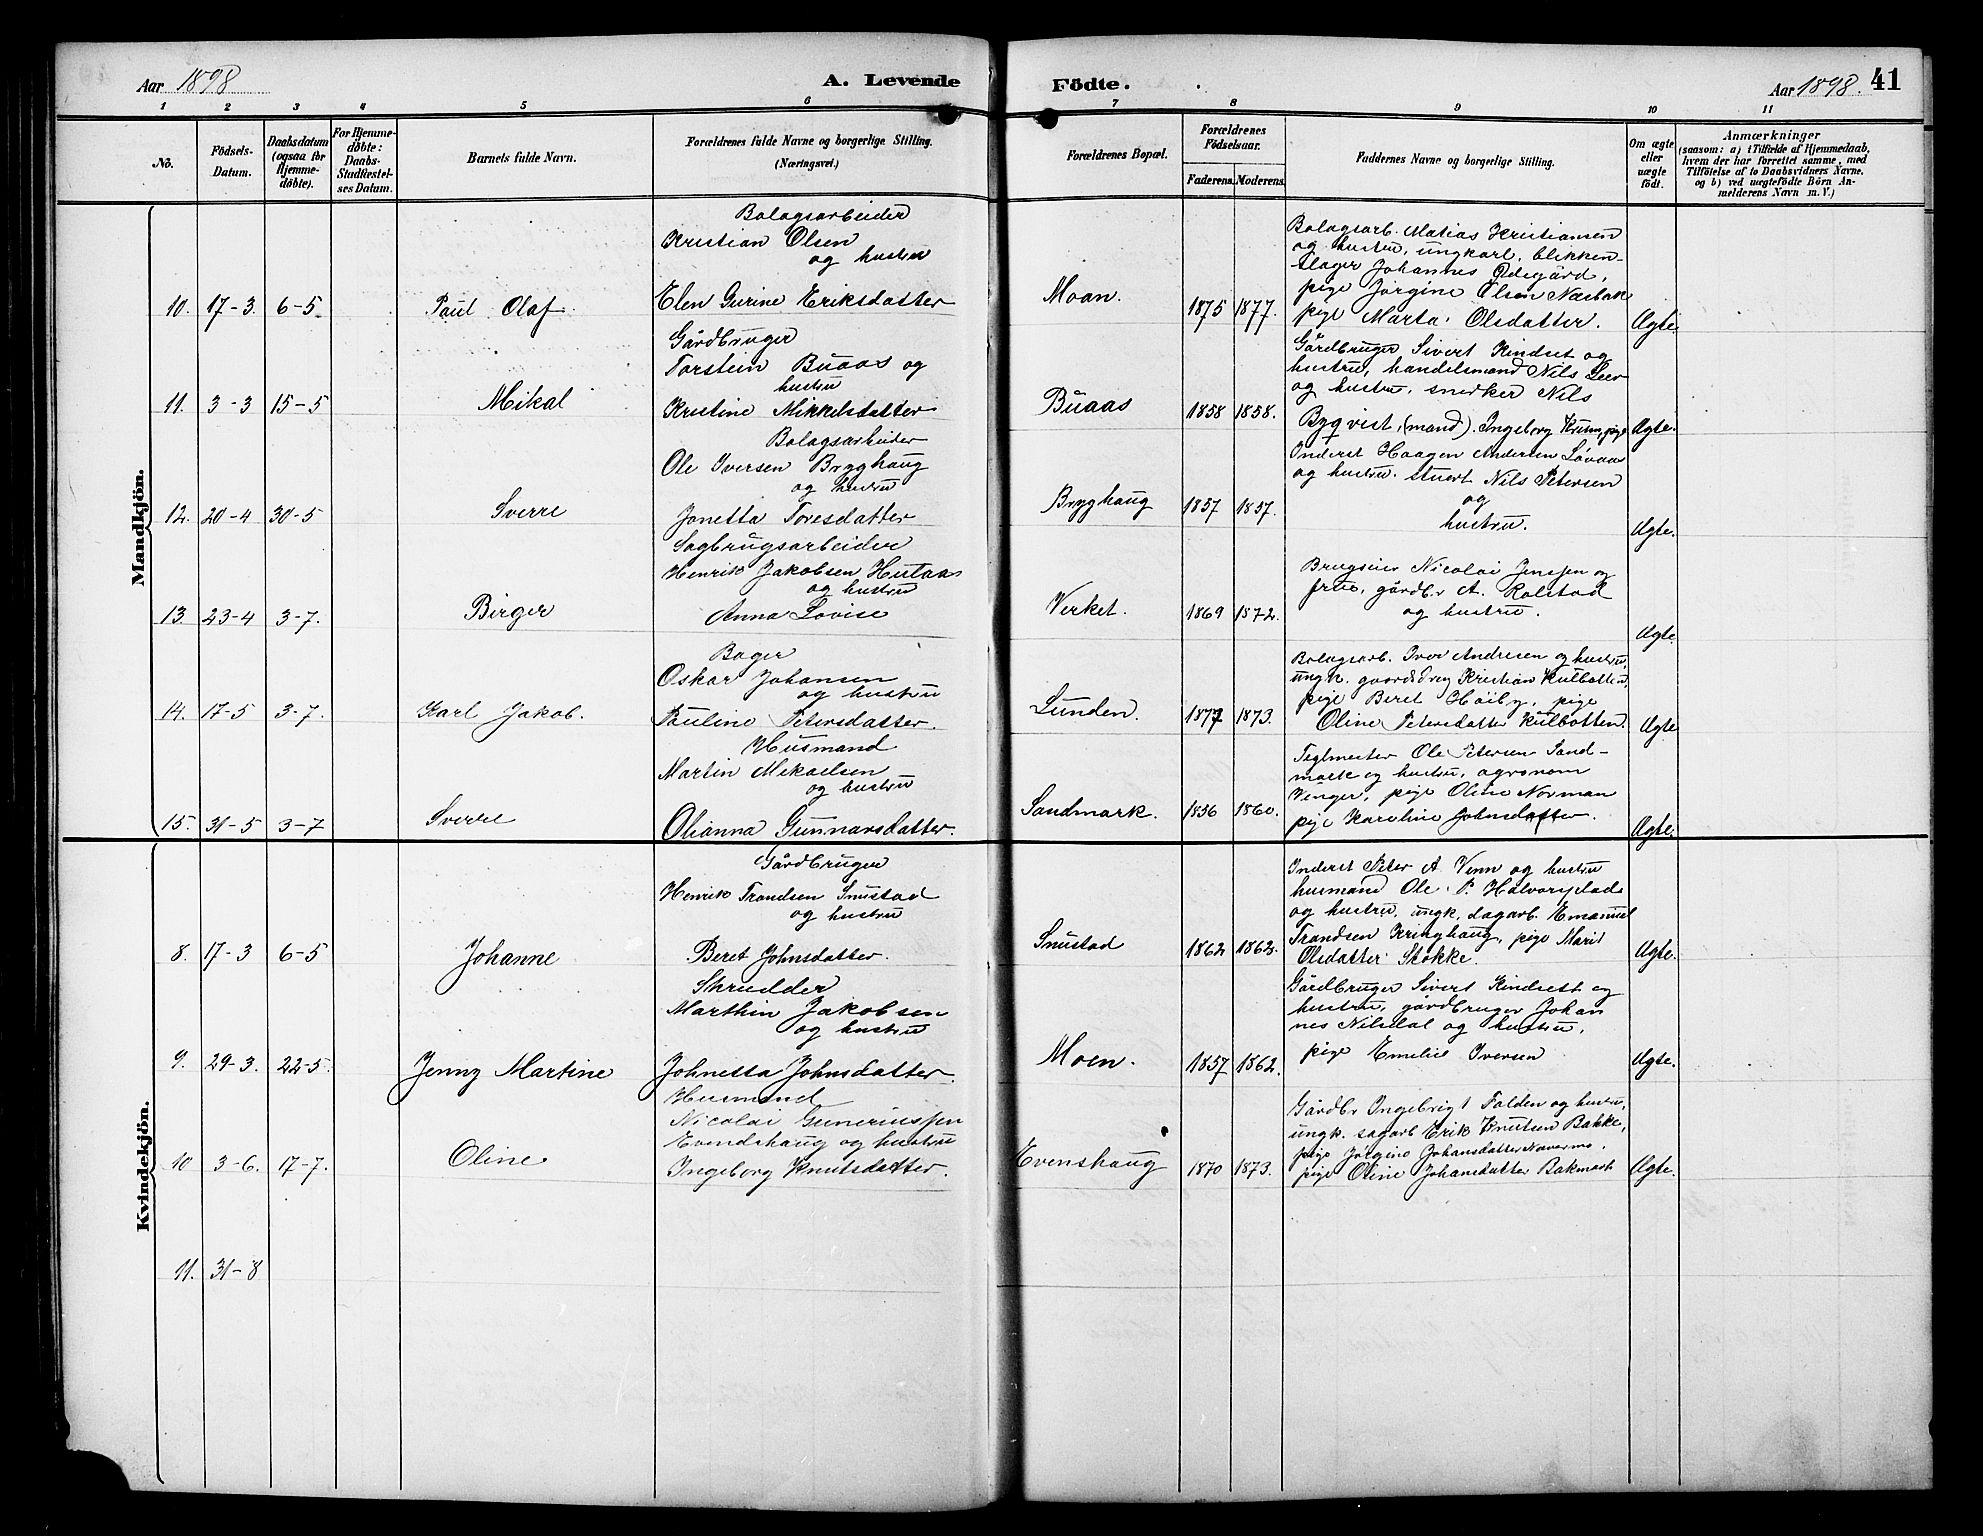 Aar 1898
A. Levende
Födte.
Aar 1898.
41
1 2 3 4 5 6 7 8 9 10 11
No.
Födsels-
Datum.
Daabsdatum
(ogsaa for
Hjemme-
döbte).
For Hjemme-
döbte:
Daabs-
Stadfæstel-
ses Datum.
Barnets fulde Navn.
Forældrenes fulde Navne og borgerlige Stilling.
(Næringsvei.)
Forældrenes Bopæl.
Forældrenes
Födselsaar.
Faderens. Moderens.
Faddernes Navne og borgerlige Stilling.
Om ægte
eller
uægte
født.
Anmærkninger
(saasom: a) i Tilfælde af Hjemmedaab,
hvem der har forrettet samme, med
Tilföielse af to Daabsvidners Navne,
og b) ved uægtefödte Börn An-
melderens Navn m. V.)
Mandkjön.
Bolagsarbeider
Kristian Olsen
og hustru
10. 17-3. 6-5. Paul Olaf. Elen Gurine Eriksdatter
Moan. 1875 1877.
Bolagsarb. Matias Kristiansen
og hustru, ungkarl. blikken-
slager Johannes Ødegård,
pige Jørgine Olsen Næsbak
pige Marta Olsdatter. Ægte.
Gårdbruger
Torstein Buaas og
hustru
11. 3-3 15-5 Mikal Kristine Mikkelsdatter
Buaas 1858 1858.
Gårdbruger Sivert Kindset og
hustru, handelsmand Nils Leer
og hustru, snerker Nils
Bygqvist, (mand). Ingeborg Krum, pige Ægte.
Bolagsarbeider
Ole Iversen Bryghaug
og hustru
12. 20-4 30-5 Sverre Jonetta Toresdatter
Bryghaug 1857 1857.
Inderst Haagen Andersen Løvaas
og hustru. stuert Nils Petersen
og
hustru. Ægte.
Sagbrugsarbeider
Henrik Jakobsen Hutaas
og hustru
13. 23-4 3-7. Birger Anna Lovise
Verket. 1869 1872.
Brugseier Nicolai Jenssen og
frue, gårdbr A. Rolstad
og hustru. Ægte.
Bager
Oskar Johansen
og hustru
14. 17-5 3-7. Karl Jakob. Pauline Petersdatter.
Lunden. 1877 1873.
Bolagsarb. Iver Andresen og hustru,
ungk. gaardsdreng Kristian Kulbotten,
pige Beret Høiby, pige
Oline Petersdatter Kulbotten. Ægte
Husmand
Martin Mikaelsen
og hustru
15. 31-5 3-7 Sverre Olianna Gunnarsdatter.
Sandmark. 1856 1860.
Teglmester Ole Petersen Sand-
mark og hustru, agronom
Venger, pige Oline Norman
pige Karoline Johnsdatter. Ægte.
Kvindekjön.
Gårdbruger
Henrik Trondsen Snustad
og hustru
8. 17-3 6-5 Johanne Beret Johnsdatter.
Snustad 1862 1862.
Inderst Peter A. Venn og hustru
husmand Ole P. Halvorsplads
og hustru, ungk. dagarb. Emanuel
Trondsen Kringhaug, pige Marit
Olsdatter Stokke. Ægte.
Skrædder
Marthin Jakobsen
og hustru
9. 29-3. 22-5. Jenny Martine Johnetta Johnsdatter.
Moen. 1857 1862.
Gårdbruger Sivert Kindsett og
hustru, gårdbruger Johan
nes Nilsdal og hustru,
pige Emelie Iversen Ægte.
Husmand
Nicolai Guneriussen
Evendshaug og hustru
10 3-6. 17-7. Oline Ingeborg Knutsdatter.
Evenshaug 1870 1873.
Gårdbr Ingebrigt Folden og hustru,
ungk. sagarb Erik Knutsen Bakke,
pige Jørgine Johansdatter Navermo.
pige Oline Johansdatter Bakmark Ægte.
11. 31-8